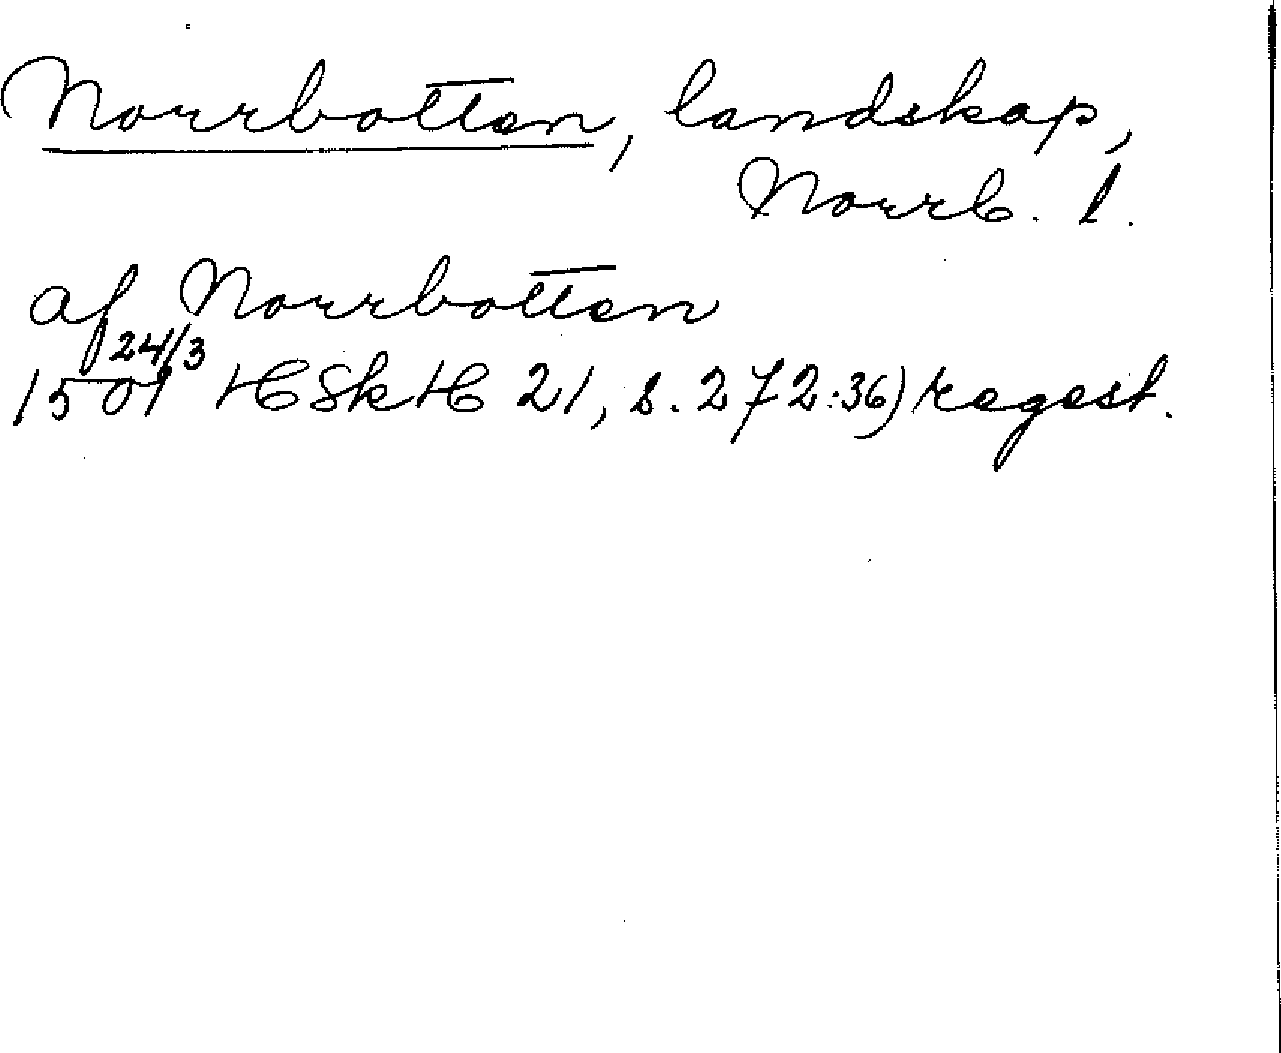 Norrbotten, landskap,
Norrb. l.
af Norrbotten
24/3
1501 HSkH 21, s. 272:36) regest.